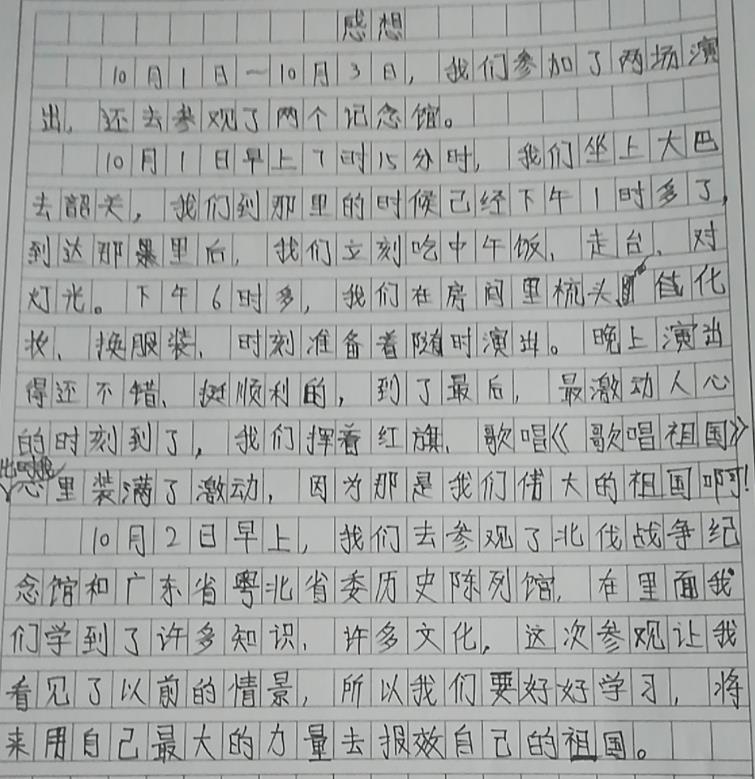 感想
10月1日一10月3日，我们参加了两场演
出，还去参观了两个记念馆。
10月1日早上7时15分时，我们坐上大巴
去韶关，我们到那里的时候已经下午1时多了，
到达那里后，我们立刻吃中午饭、走台、对
灯光。下午6时多，我们在房间里梳头、化
妆、换服装、时刻准备着随时演出。晚上演出
得还不错、挺顺利的，到了最后，最激动人心
的时刻到了，我们挥着红旗、歌唱《歌唱祖国》
此时我
心里装满了激动，因为那是我们伟大的祖国啊!
10月2日早上，我们去参观了北伐战争纪
念馆和广东省粤北省委历史陈列馆，在里面我
们学到了许多知识、许多文化，这次参观让我
看见了以前的情景，所以我们要好好学习，将
来用自己最大的力量去报效自己的祖国。